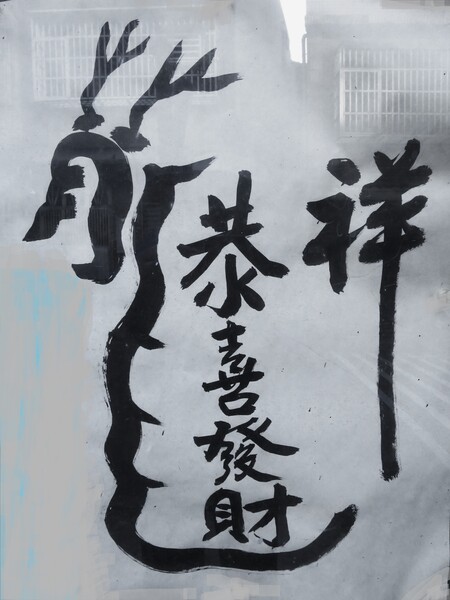 祥龍
恭喜發財